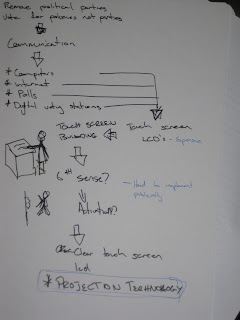 Remove political parties
Vote for policies not parties
Communication
* Computers
* Internet
* Polls
* Digital voting stations
Touch screen
LCD's - Expensive
TOUCH SCREEN
BUILDING
6th sense?
- Hard to implement
Activation?
Clear touch screen
lcd
* PROJECTION TECHNOLOGY